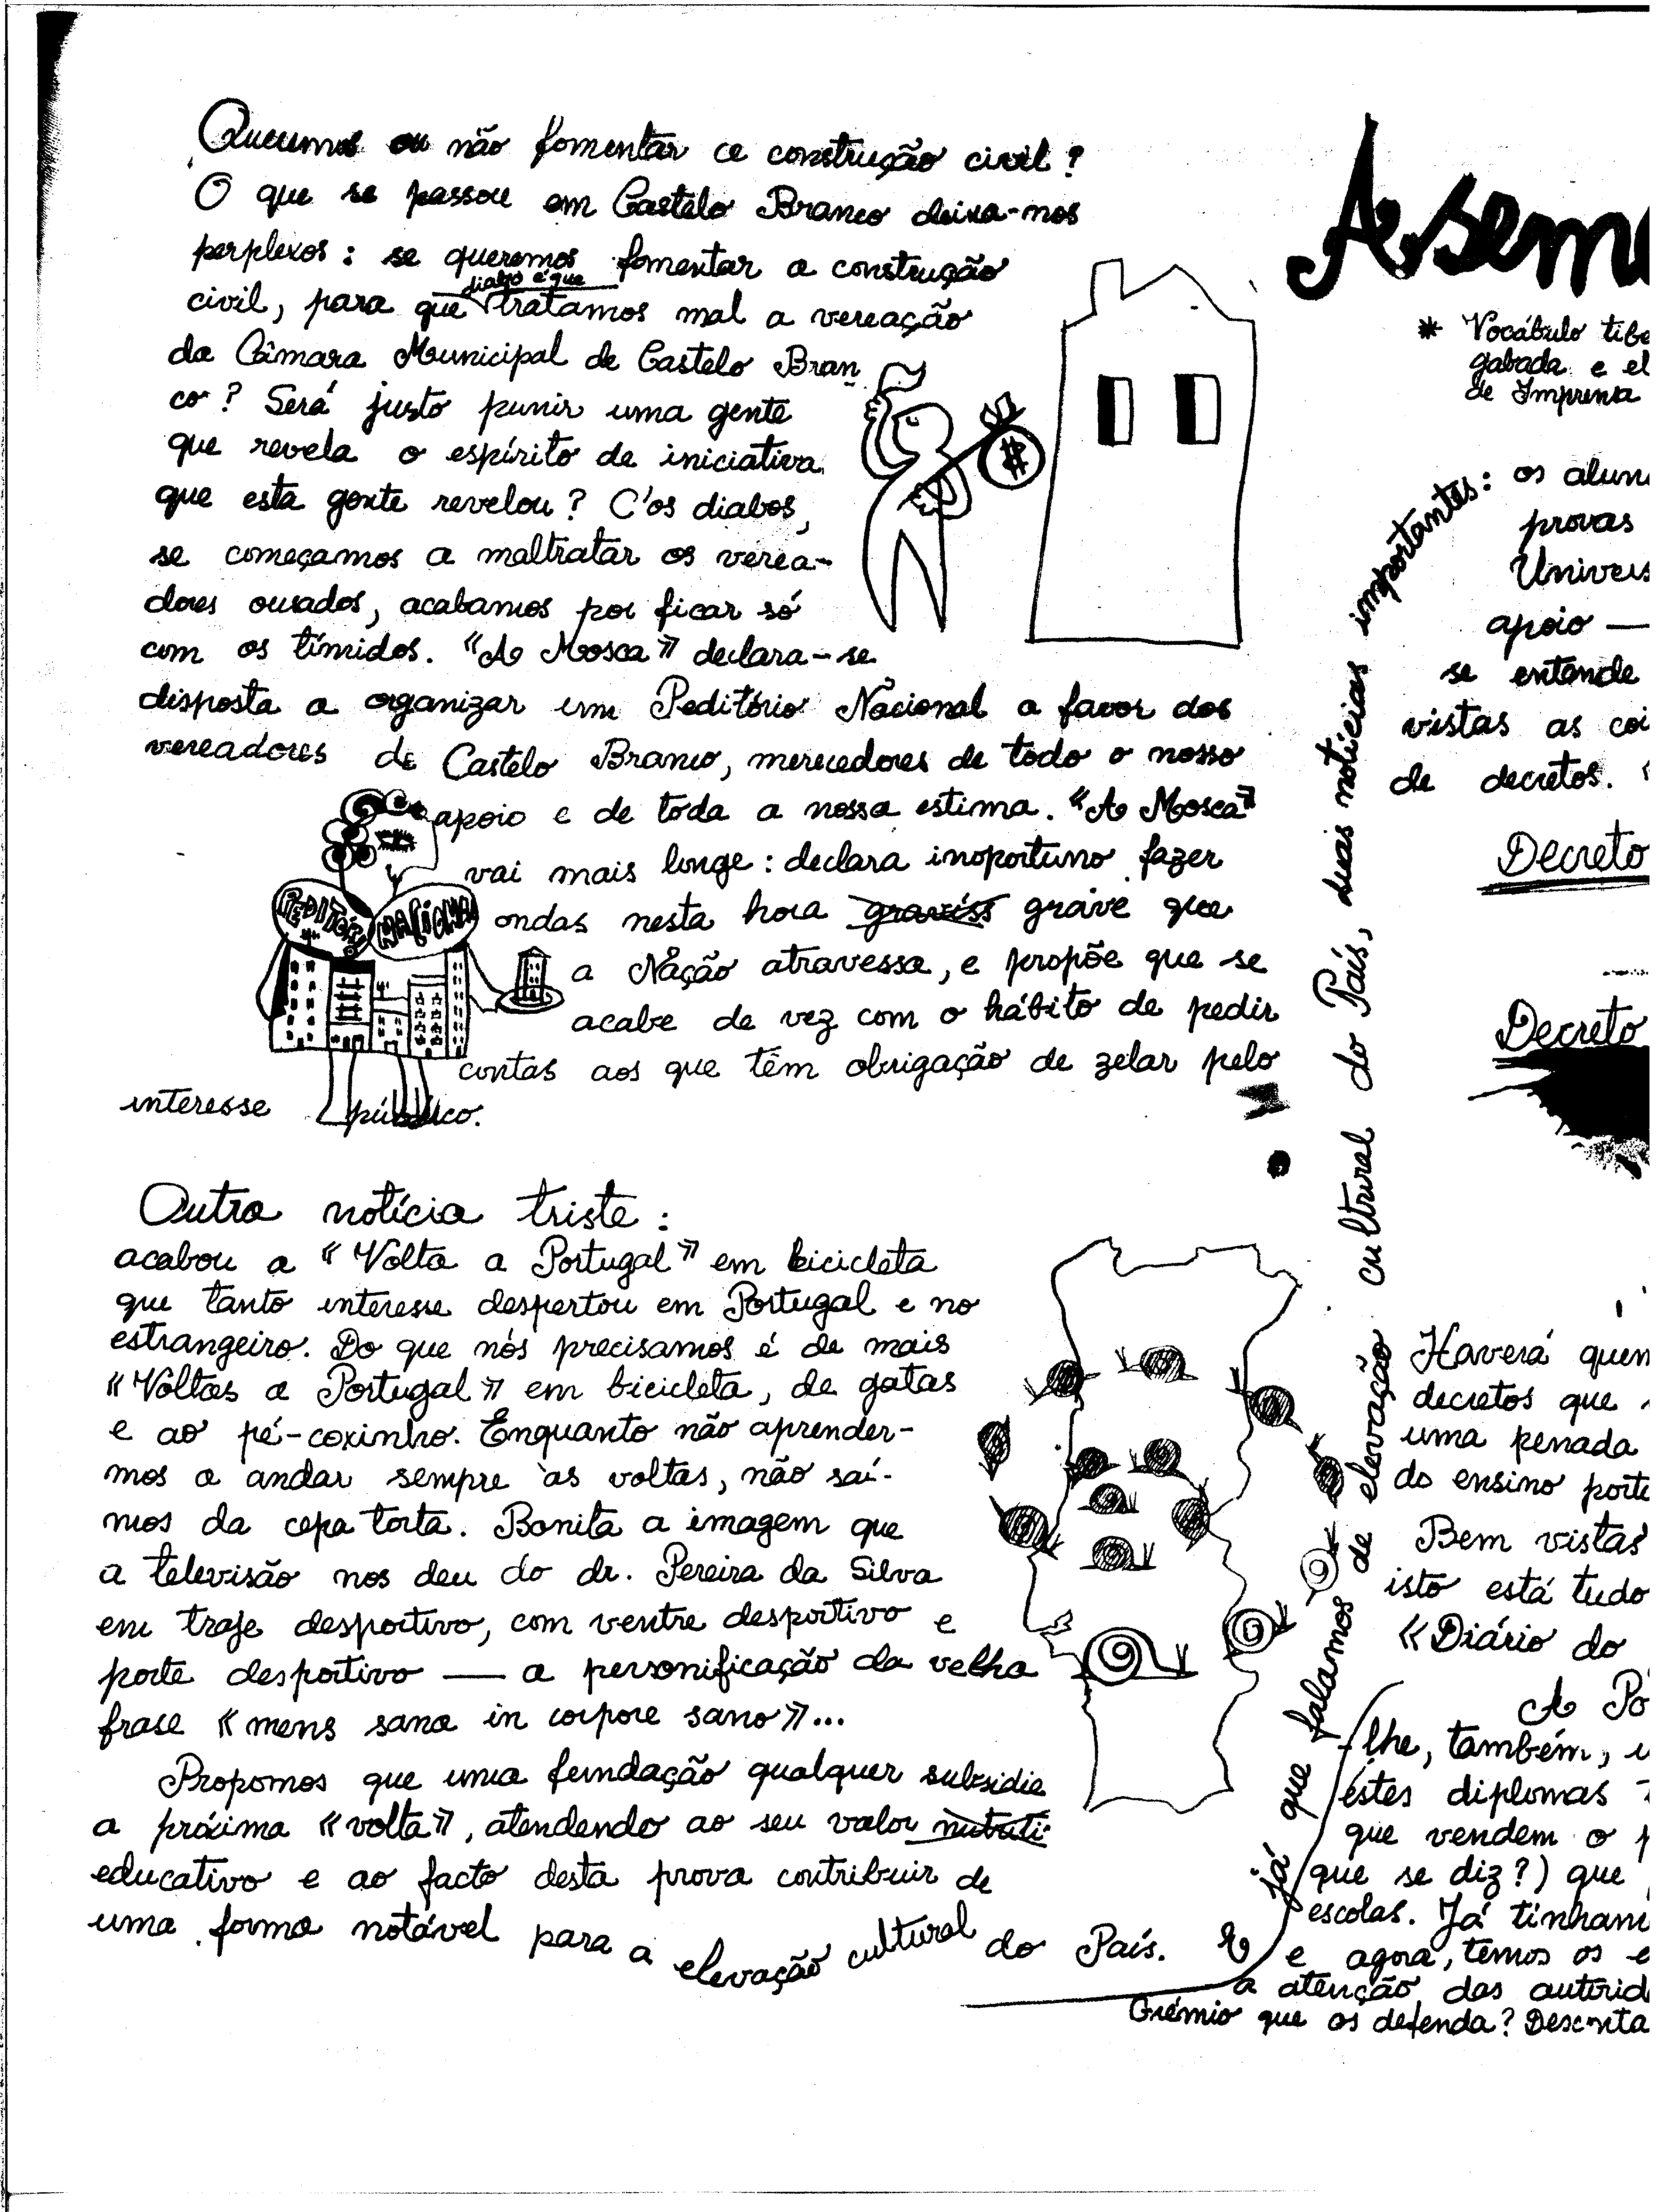 Queremos ou não fomentar a construção civil?
O que se passou em Castelo Branco deixa-nos
perplexos: se queremos fomentar a construção
diabo é que
civil, para que tratamos mal a vereação
da Câmara Municipal de Castelo Bran
co? Será justo punir uma gente
que revela o espírito de iniciativa
que esta gente revelou? C'os diabos,
se começamos a maltratar os verea-
dores ousados, acabamos por ficar só
com os tímidos. «A Mosca» declara-se
disposta a organizar um Peditório Nacional a favor dos
vereadores de Castelo Branco, merecedores de todo o nosso
apoio e de toda a nossa estima. «A Mosca»
vai mais longe: declara inoportuno fazer
ondas nesta hora graviss grave que
a Nação atravessa, e propõe que se
acabe de vez com o hábito de pedir
contas aos que têm obrigação de zelar pelo
interesse público.
PEDITÓRIO
NACIONAL
$
Outra notícia triste:
acabou a «Volta a Portugal» em bicicleta
que tanto interesse despertou em Portugal e no
estrangeiro. Do que nós precisamos é de mais
«Voltas a Portugal» em bicicleta, de gatas
e ao pé-coxinho. Enquanto não aprender-
mos a andar sempre às voltas, não saí-
mos da cepa torta. Bonita a imagem que
a televisão nos deu do dr. Pereira da Silva
em traje desportivo, com ventre desportivo e
porte desportivo — a personificação da velha
frase «mens sana in corpore sano»...
Propomos que uma fundação qualquer subsidie
a próxima «volta», atendendo ao seu valor nutriti
educativo e ao facto desta prova contribuir de
uma forma notável para a elevação cultural do País. E
já que falamos de elevação cultural do País, duas notícias importantes: os alun
provas
Univers
apoio —
se entende
vistas as coi
de decretos. «
Decreto
Decreto
A sem
* Vocábulo tibe
gabada e el
de Imprensa
Haverá quem
decretos que
uma penada
do ensino portu
Bem vistas
isto está tudo
«Diário do
A Po
-lhe, também, u
êstes diplomas
que vendem o p
que se diz?) que
escolas. Já tinham
e agora, temos os e
a atenção das autorid
Grémio que os defenda? Desconta